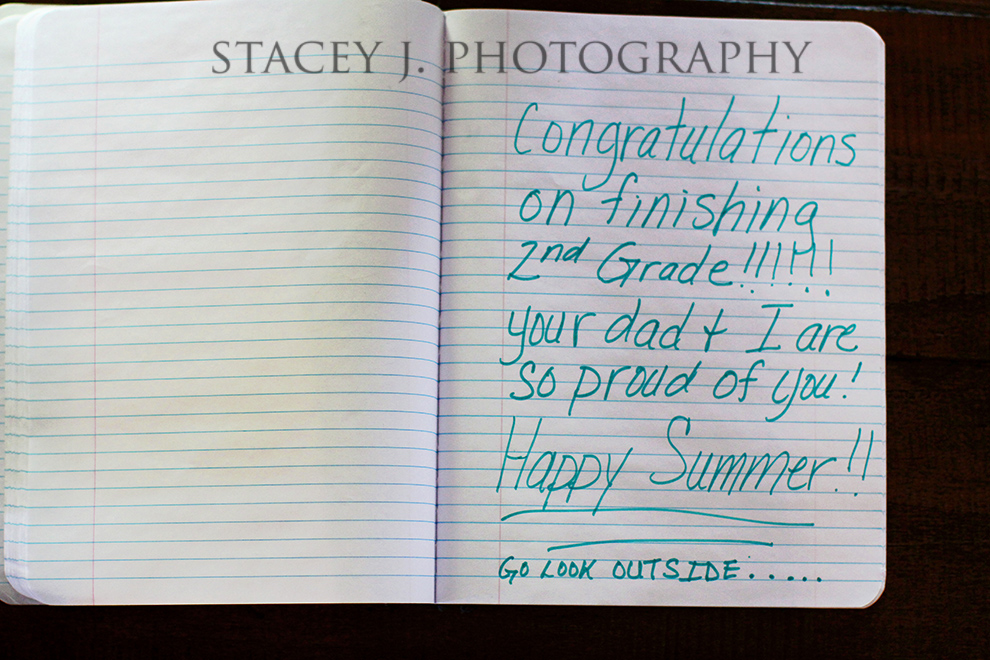 STACEY J. PHOTOGRAPHY
Congratulations
on finishing
2nd Grade!!!!!!
your dad + I are
so proud of you!
Happy Summer!!
GO LOOK OUTSIDE.....